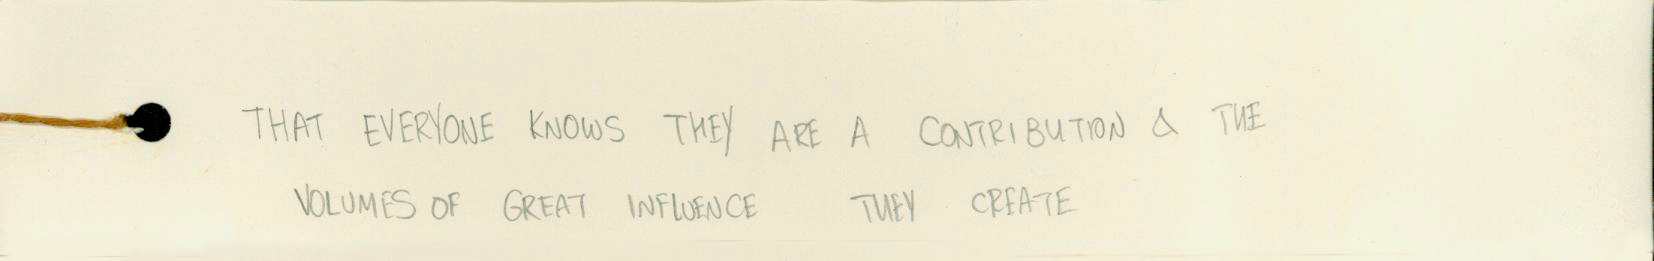 THAT EVERYONE KNOWS THEY ARE A CONTRIBUTION & THE
VOLUMES OF GREAT INFLUENCE THEY CREATE